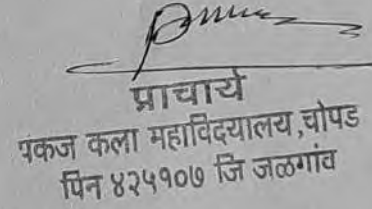 प्राचार्य
पंकज कला महाविदयालय,चोपड
पिन ४२५१०७ जि जळगांव